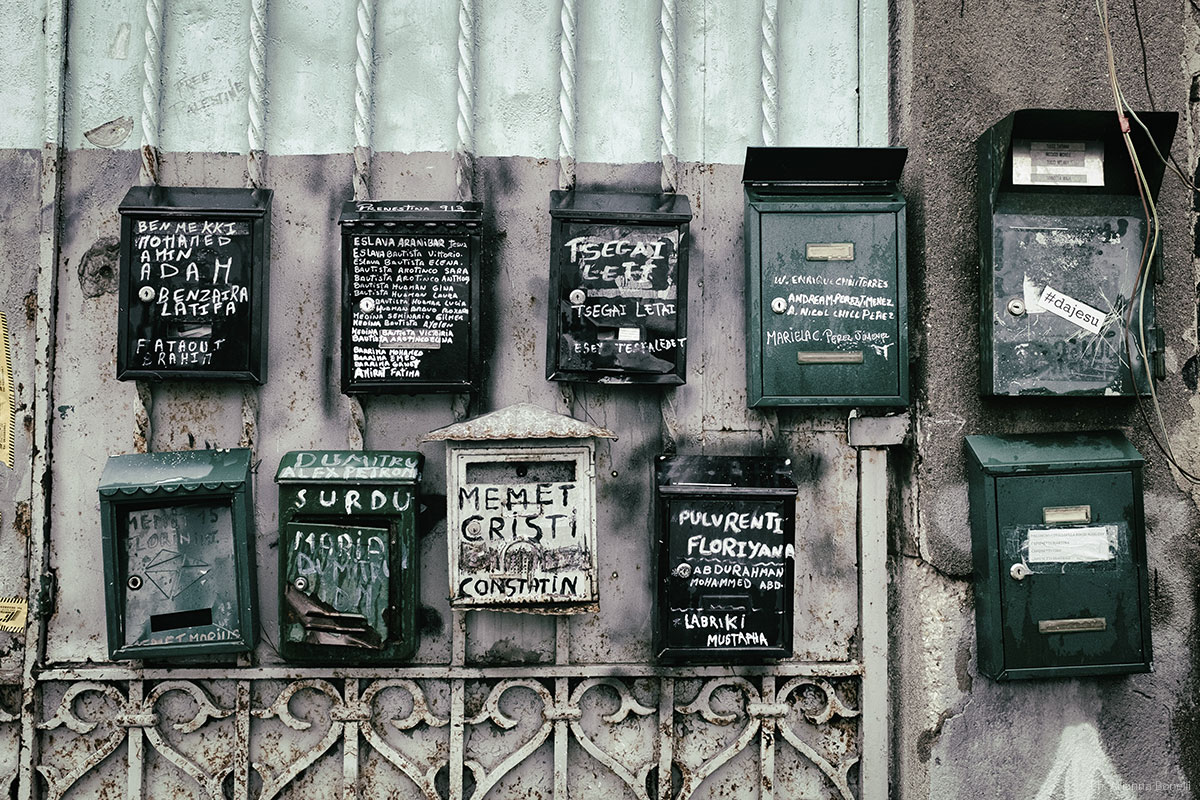 FREE
PALESTINE
BEN MEKKI
MOHAMED
AMIN
ADAM
BENZAIRA
LATIFA
FATAOUT
BRAHIM
PRENESTINA 913
ESLAVA ARANIBAR
ESLAVA BAUTISTA VITTORIO
ESLAVA BAUTISTA ELENA
BAUTISTA AROTINCO SARA
BAUTISTA AROTINCO ANTHONY
BAUTISTA HUAMAN GINA
BAUTISTA HUAMAN LAURA
BAUTISTA HUAMAR LUCIA
HUAMAN BRAVO
MEDINA SEMINARIO GILMER
MEDINA BAUTISTA AYELEN
MEDINA BAUTISTA VICTORIA
BAUTISTA AROTINCO GINA
BARRIRA MOHAMED
BARRIRA
BARRIRA
AMIRAT FATIMA
TSEGAI
LETI
TSEGAI LETAI
ESEY TESFALEDET
W. ENRIQUE
ANDREA M. PEREZ JIMENEZ
A. NICOL CHICL PEREZ
MARIELA C. PEREZ JIMENEZ
#dajesu
MEMET IS
FLORIN
MEMET MARIUS
DUMITRU
ALEX PETRON
SURDU
MARIA
DUMIN
MEMET
CRISTI
CONSTATIN
PULVRENTI
FLORIYANA
ABDURAHMAN
MOHAMMED ABD-
LABRIKI
MUSTAPHA